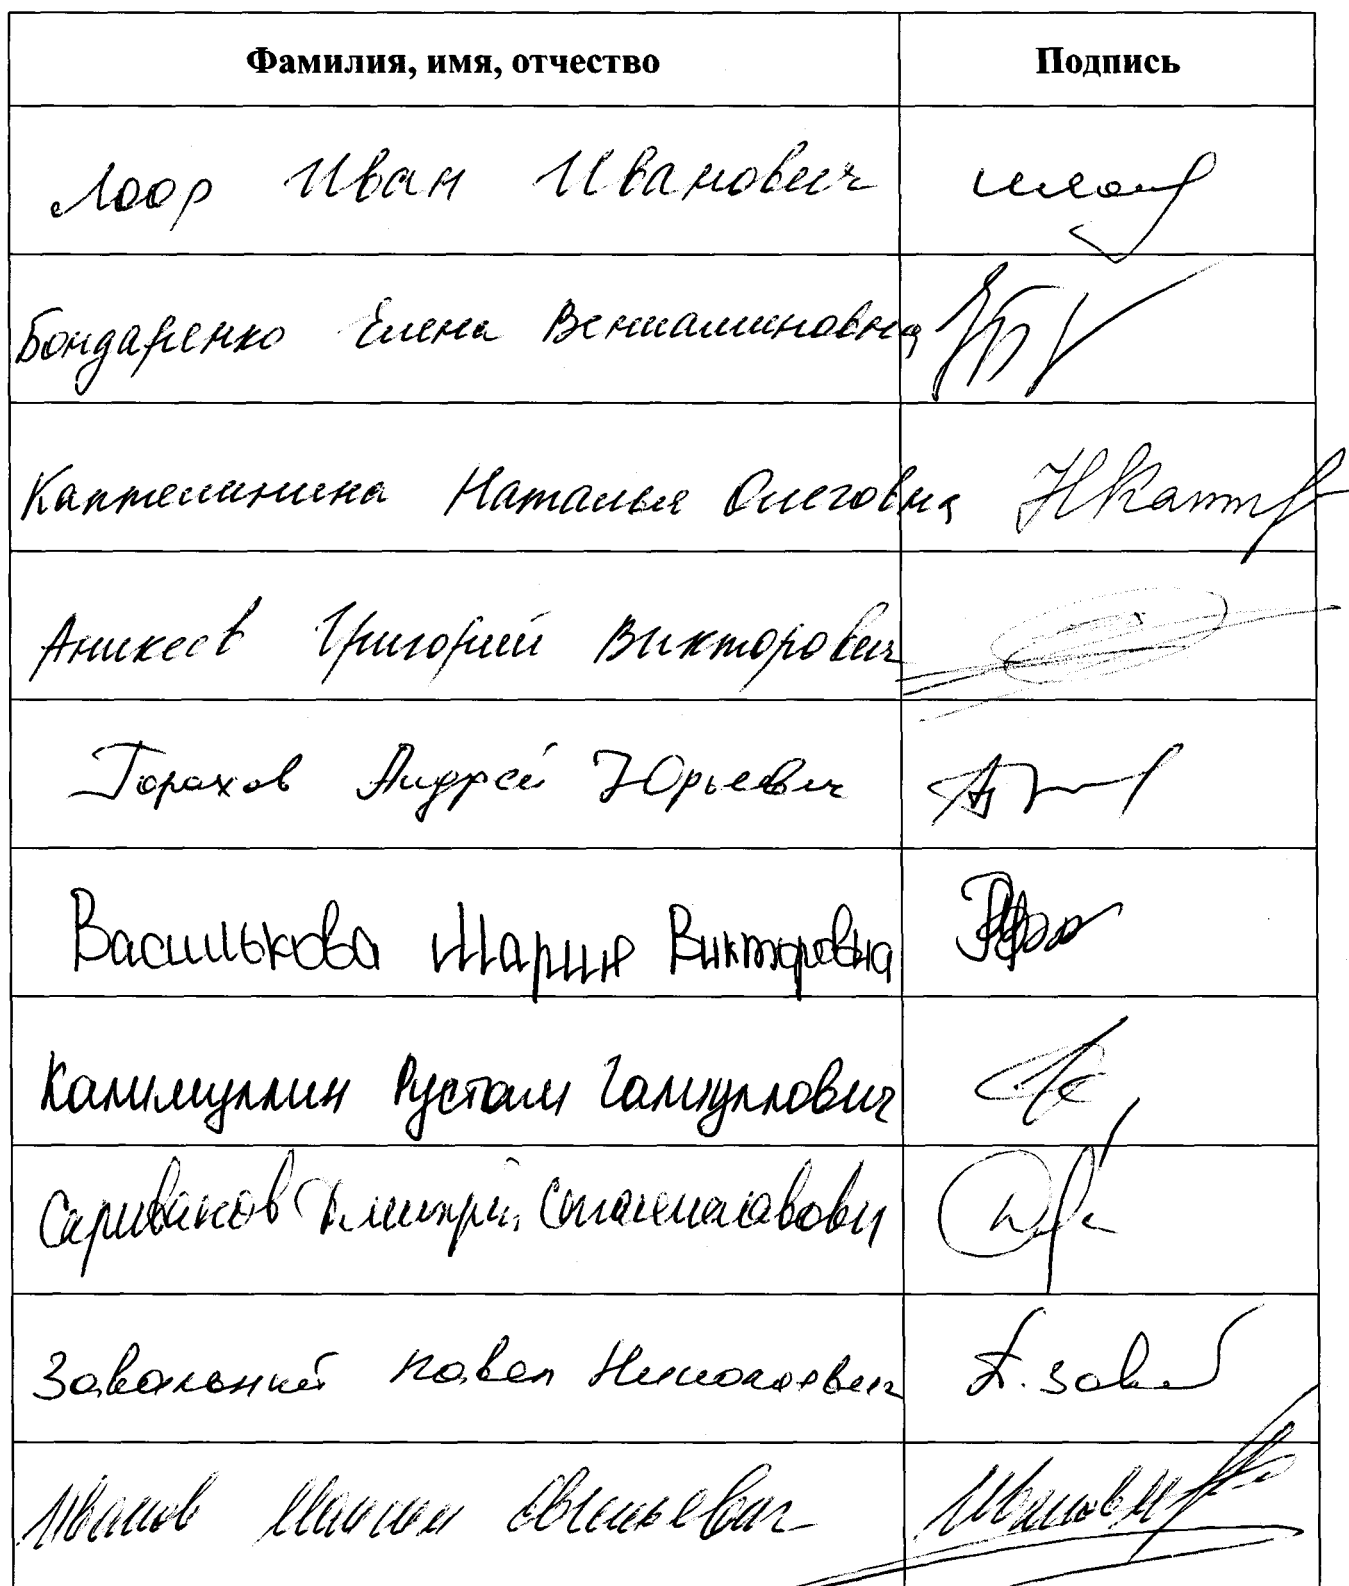 Фамилия, имя, отчество Подпись
Лоор Иван Иванович
Бондаренко Елена Вениаминовна
Каптелинина Наталья Олеговна
Аникеев Григорий Викторович
Горохов Андрей Юрьевич
Василькова Мария Викторовна
Калимуллин Рустам Галиуллович
Станиславович
Завальный Павел Николаевич П. Завал
Иванов Максим Евгеньевич